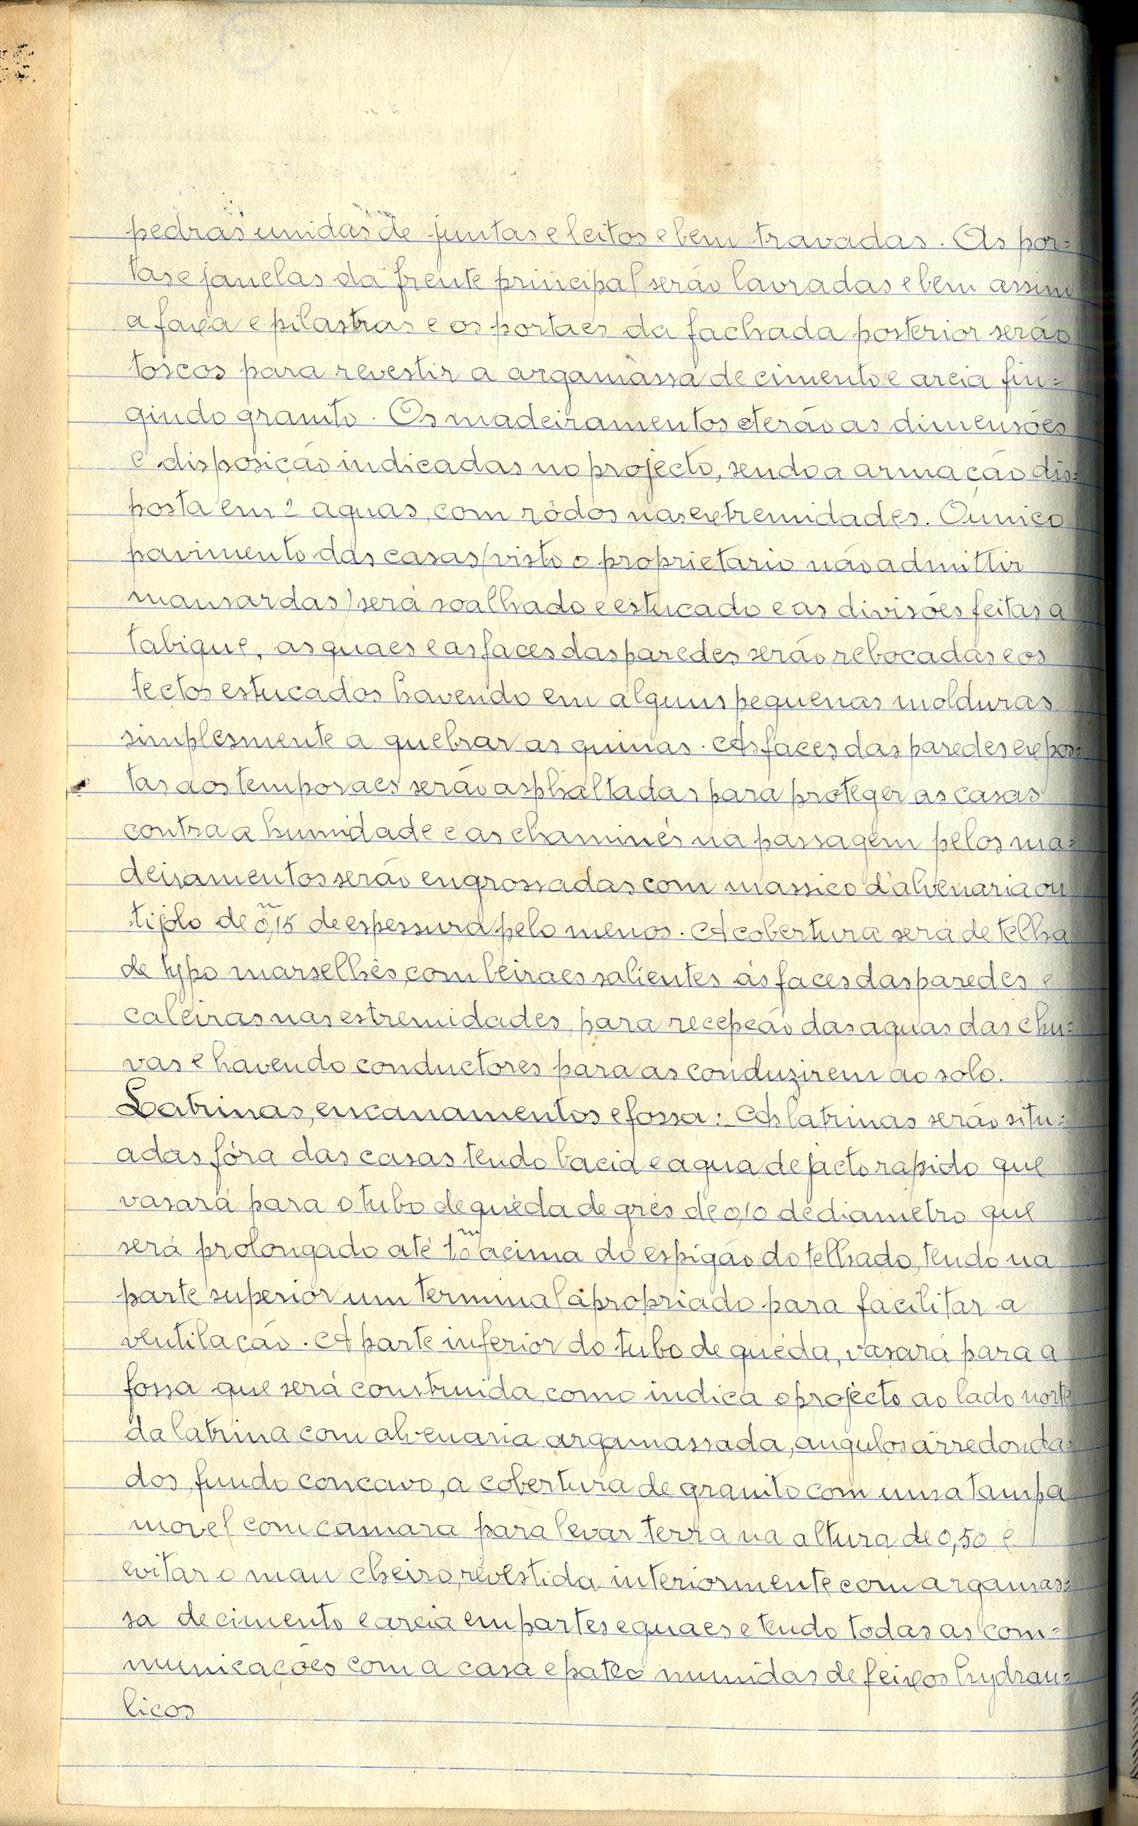 pedras unidas de juntas e leitos e bem travadas. As por=
tas e janelas da frente principal serão lavradas e bem assim
a faxa e pilastras e os portaes da fachada posterior serão
toscos para revestir a argamassa de cimento e areia fin=
gindo granito. Os madeiramentos terão as dimensões
e disposição indicadas no projecto, sendo a armação dis=
posta em 2 aguas, com ródos nas extremidades. O unico
pavimento das casas (visto o proprietario não admittir
mansardas) será soalhado e estucado e as divisões feitas a
tabique, as quaes e as faces das paredes serão rebocadas e os
tectos estucados havendo em alguns pequenas molduras
simplesmente a quebrar as quinas. As faces das paredes expos=
tas aos temporaes serão asphaltadas para proteger as casas
contra a humidade e as chaminés na passagem pelos ma=
deiramentos serão engrossadas com massico d'alvenaria ou
tijolo de 0,m15 de espessura pelo menos. A cobertura será de telha
de typo marselhês, com beiraes salientes ás faces das paredes e
caleiras nas estremidades, para recepção das aguas das chu=
vas e havendo conductores para as conduzirem ao solo.
Latrinas, encanamentos e fossa: As latrinas serão situ=
adas fóra das casas tendo bacia e agua de jacto rapido que
vasará para o tubo de quéda de grés de 0,10 de diametro que
será prolongado até 1,m0 acima do espigão do telhado, tendo na
parte superior um terminal apropriado para facilitar a
ventilação. A parte inferior do tubo de quéda, vasará para a
fossa que será construida, como indica o projecto ao lado norte
da latrina com alvenaria argamassada, angulos arredonda=
dos, fundo concavo, a cobertura de granito com uma tampa
movel com camara para levar terra na altura de 0,50 e
evitar o mau cheiro, revestida interiormente com argamas=
sa de cimento e areia em partes eguaes e tendo todas as com=
municações com a casa e pateo munidas de feixos hydrau=
licos